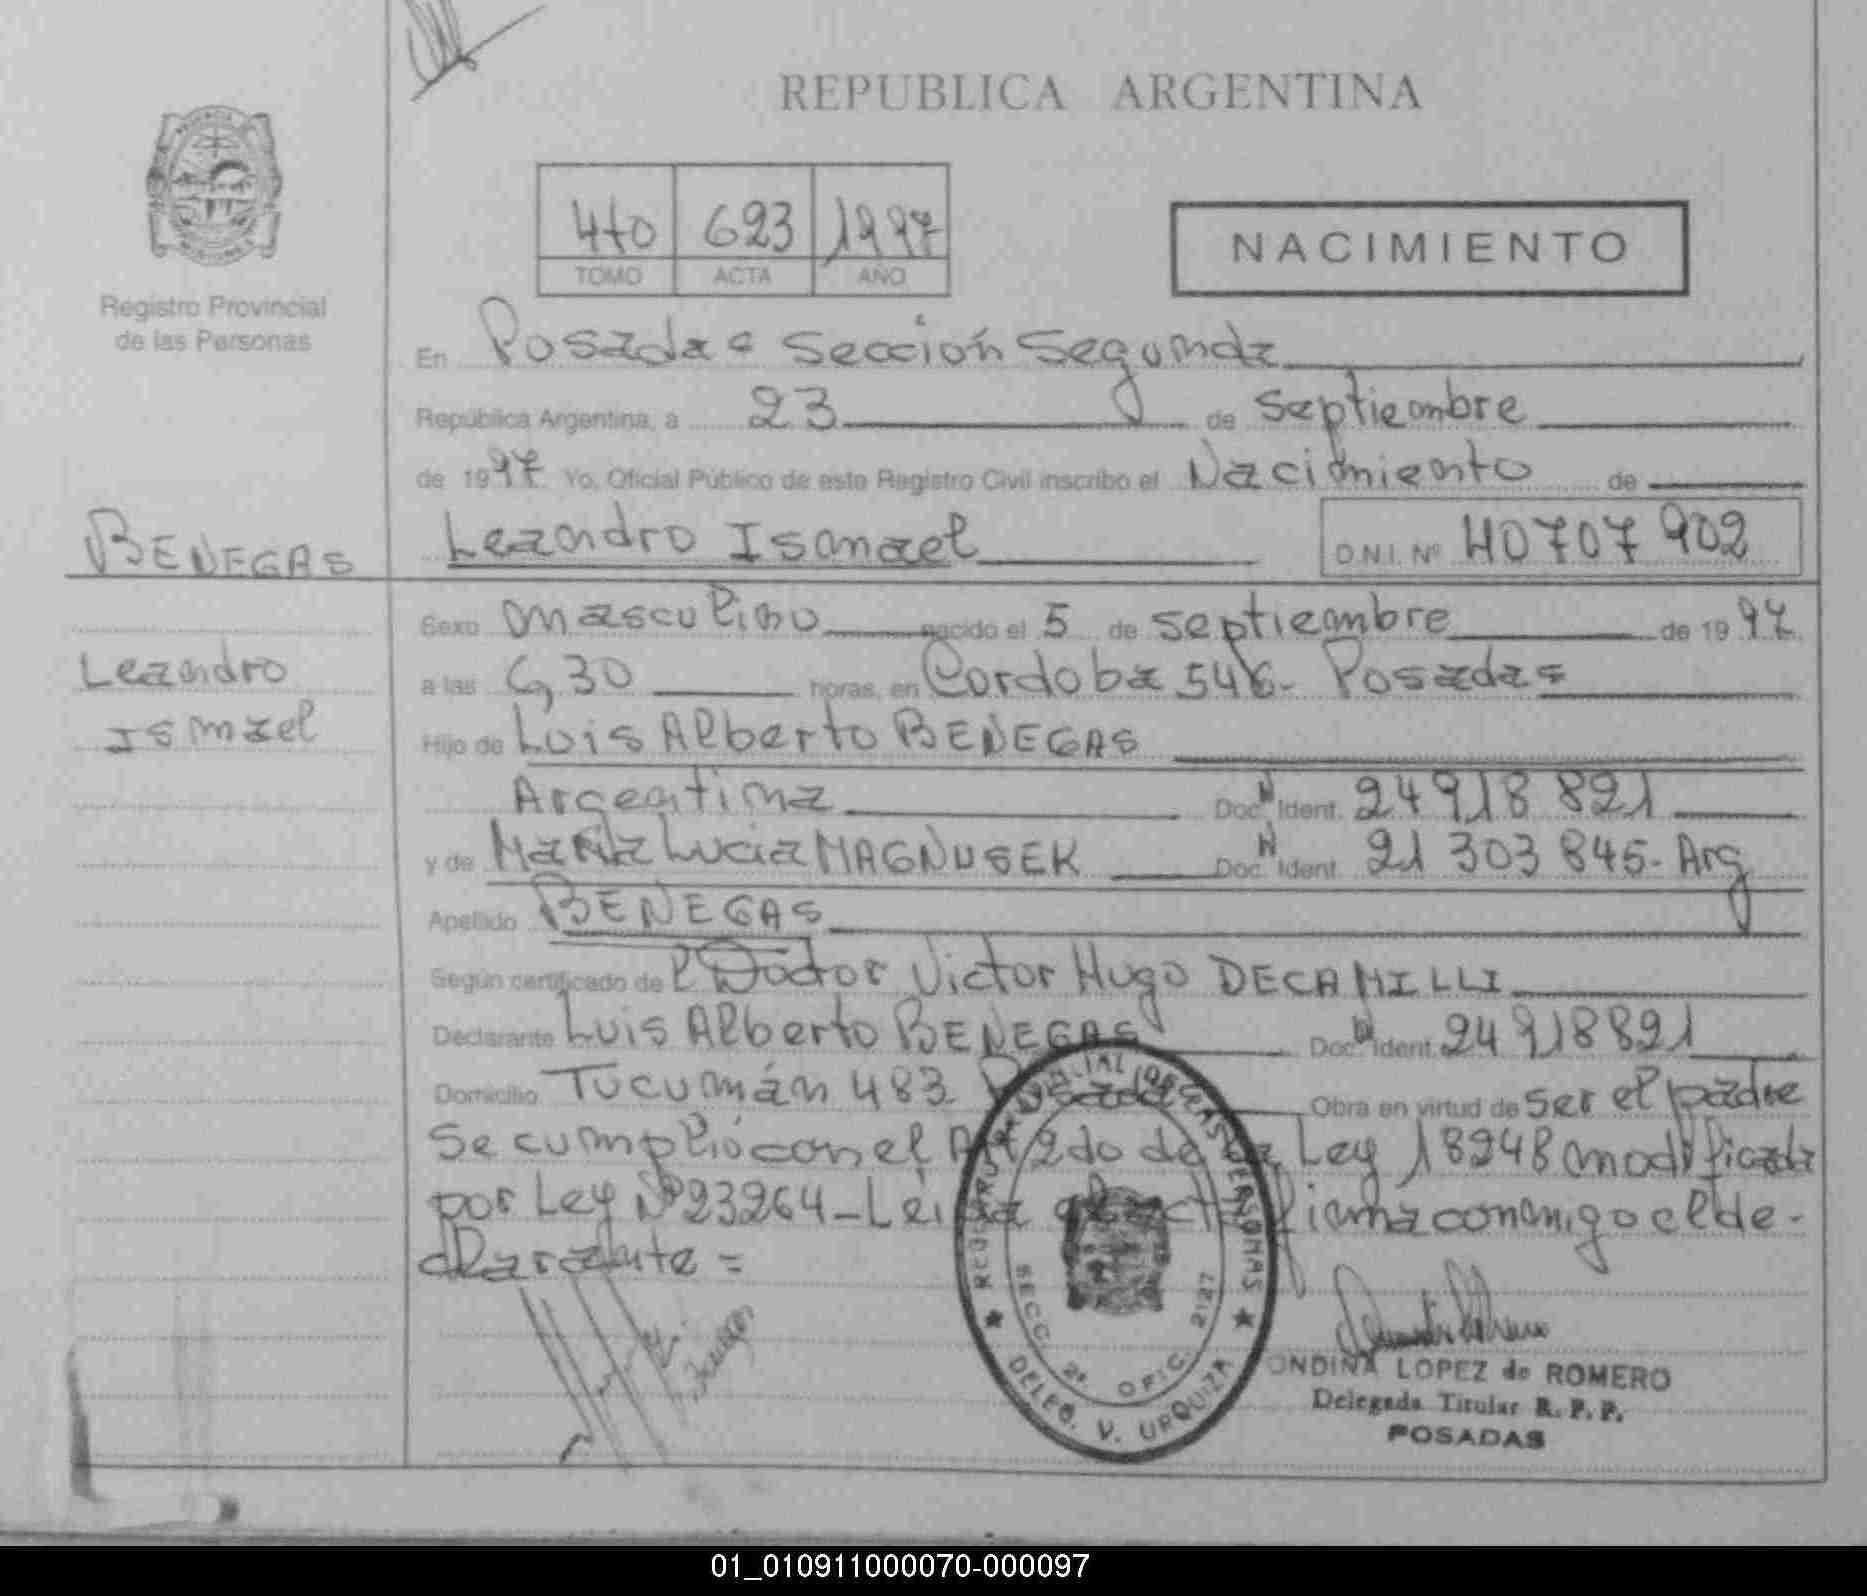 REPUBLICA ARGENTINA
Registro Provincial
de las Personas
4to 623 1997
TOMO ACTA AÑO
NACIMIENTO
En Posadas sección segunda
República Argentina, a 23 de septiembre
de 1997 Yo, Oficial Público de este Registro Civil inscribo el Nacimiento de
BENEGAS
Leandro Ismael
D.N.I. Nº 40707 902
Leandro
Ismael
Sexo masculino nacido el 5 de septiembre de 1997
a las 6,30 horas, en Cordoba 546- Posadas
Hijo de Luis Alberto BENEGAS
Argentina Doc. N Ident. 24918 821
y de María Lucia MAGNUSEK Doc. N Ident. 21 303 845- Arg
Apellido BENEGAS
Según certificado de l Doctor Victor Hugo DECAMILLI
Declarante Luis Alberto BENEGAS Doc. N Ident. 24 918821
Domicilio Tucumán 483 Posadas Obra en virtud de ser el padre
Se cumplió con el Art 2do de la Ley 18248 modificada
por Ley Nº 23264-Leida el acta firma conmigo el de-
clarante =
Benegas
REGISTRO PROVINCIAL DE LAS PERSONAS
SECC. 2ª OFIC. 2127
DELEG. V. URQUIZA
ONDINA LOPEZ de ROMERO
Delegada Titular R. P. P.
POSADAS
01_010911000070-000097